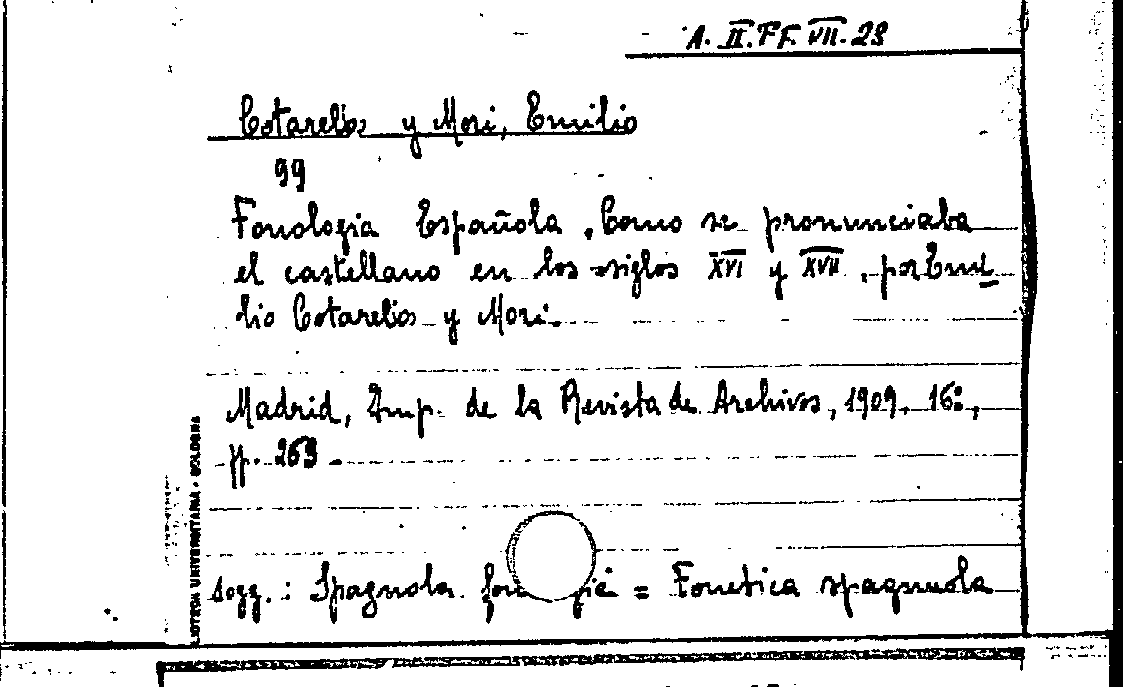 A. II. FF. VII. 23
Cotarelo y Mori, Emilio
99
Fonologia Española. Como se pronunciaba
el castellano en los siglos XVI y XVII, por Emi
lio Cotarelo y Mori.
Madrid, Imp. de la Revista de Archivos, 1909, 16º,
pp. 269
sogg.: Spagnola = Fonetica spagnuola
LIOTECA UNIVERSITARIA - BOLOGNA